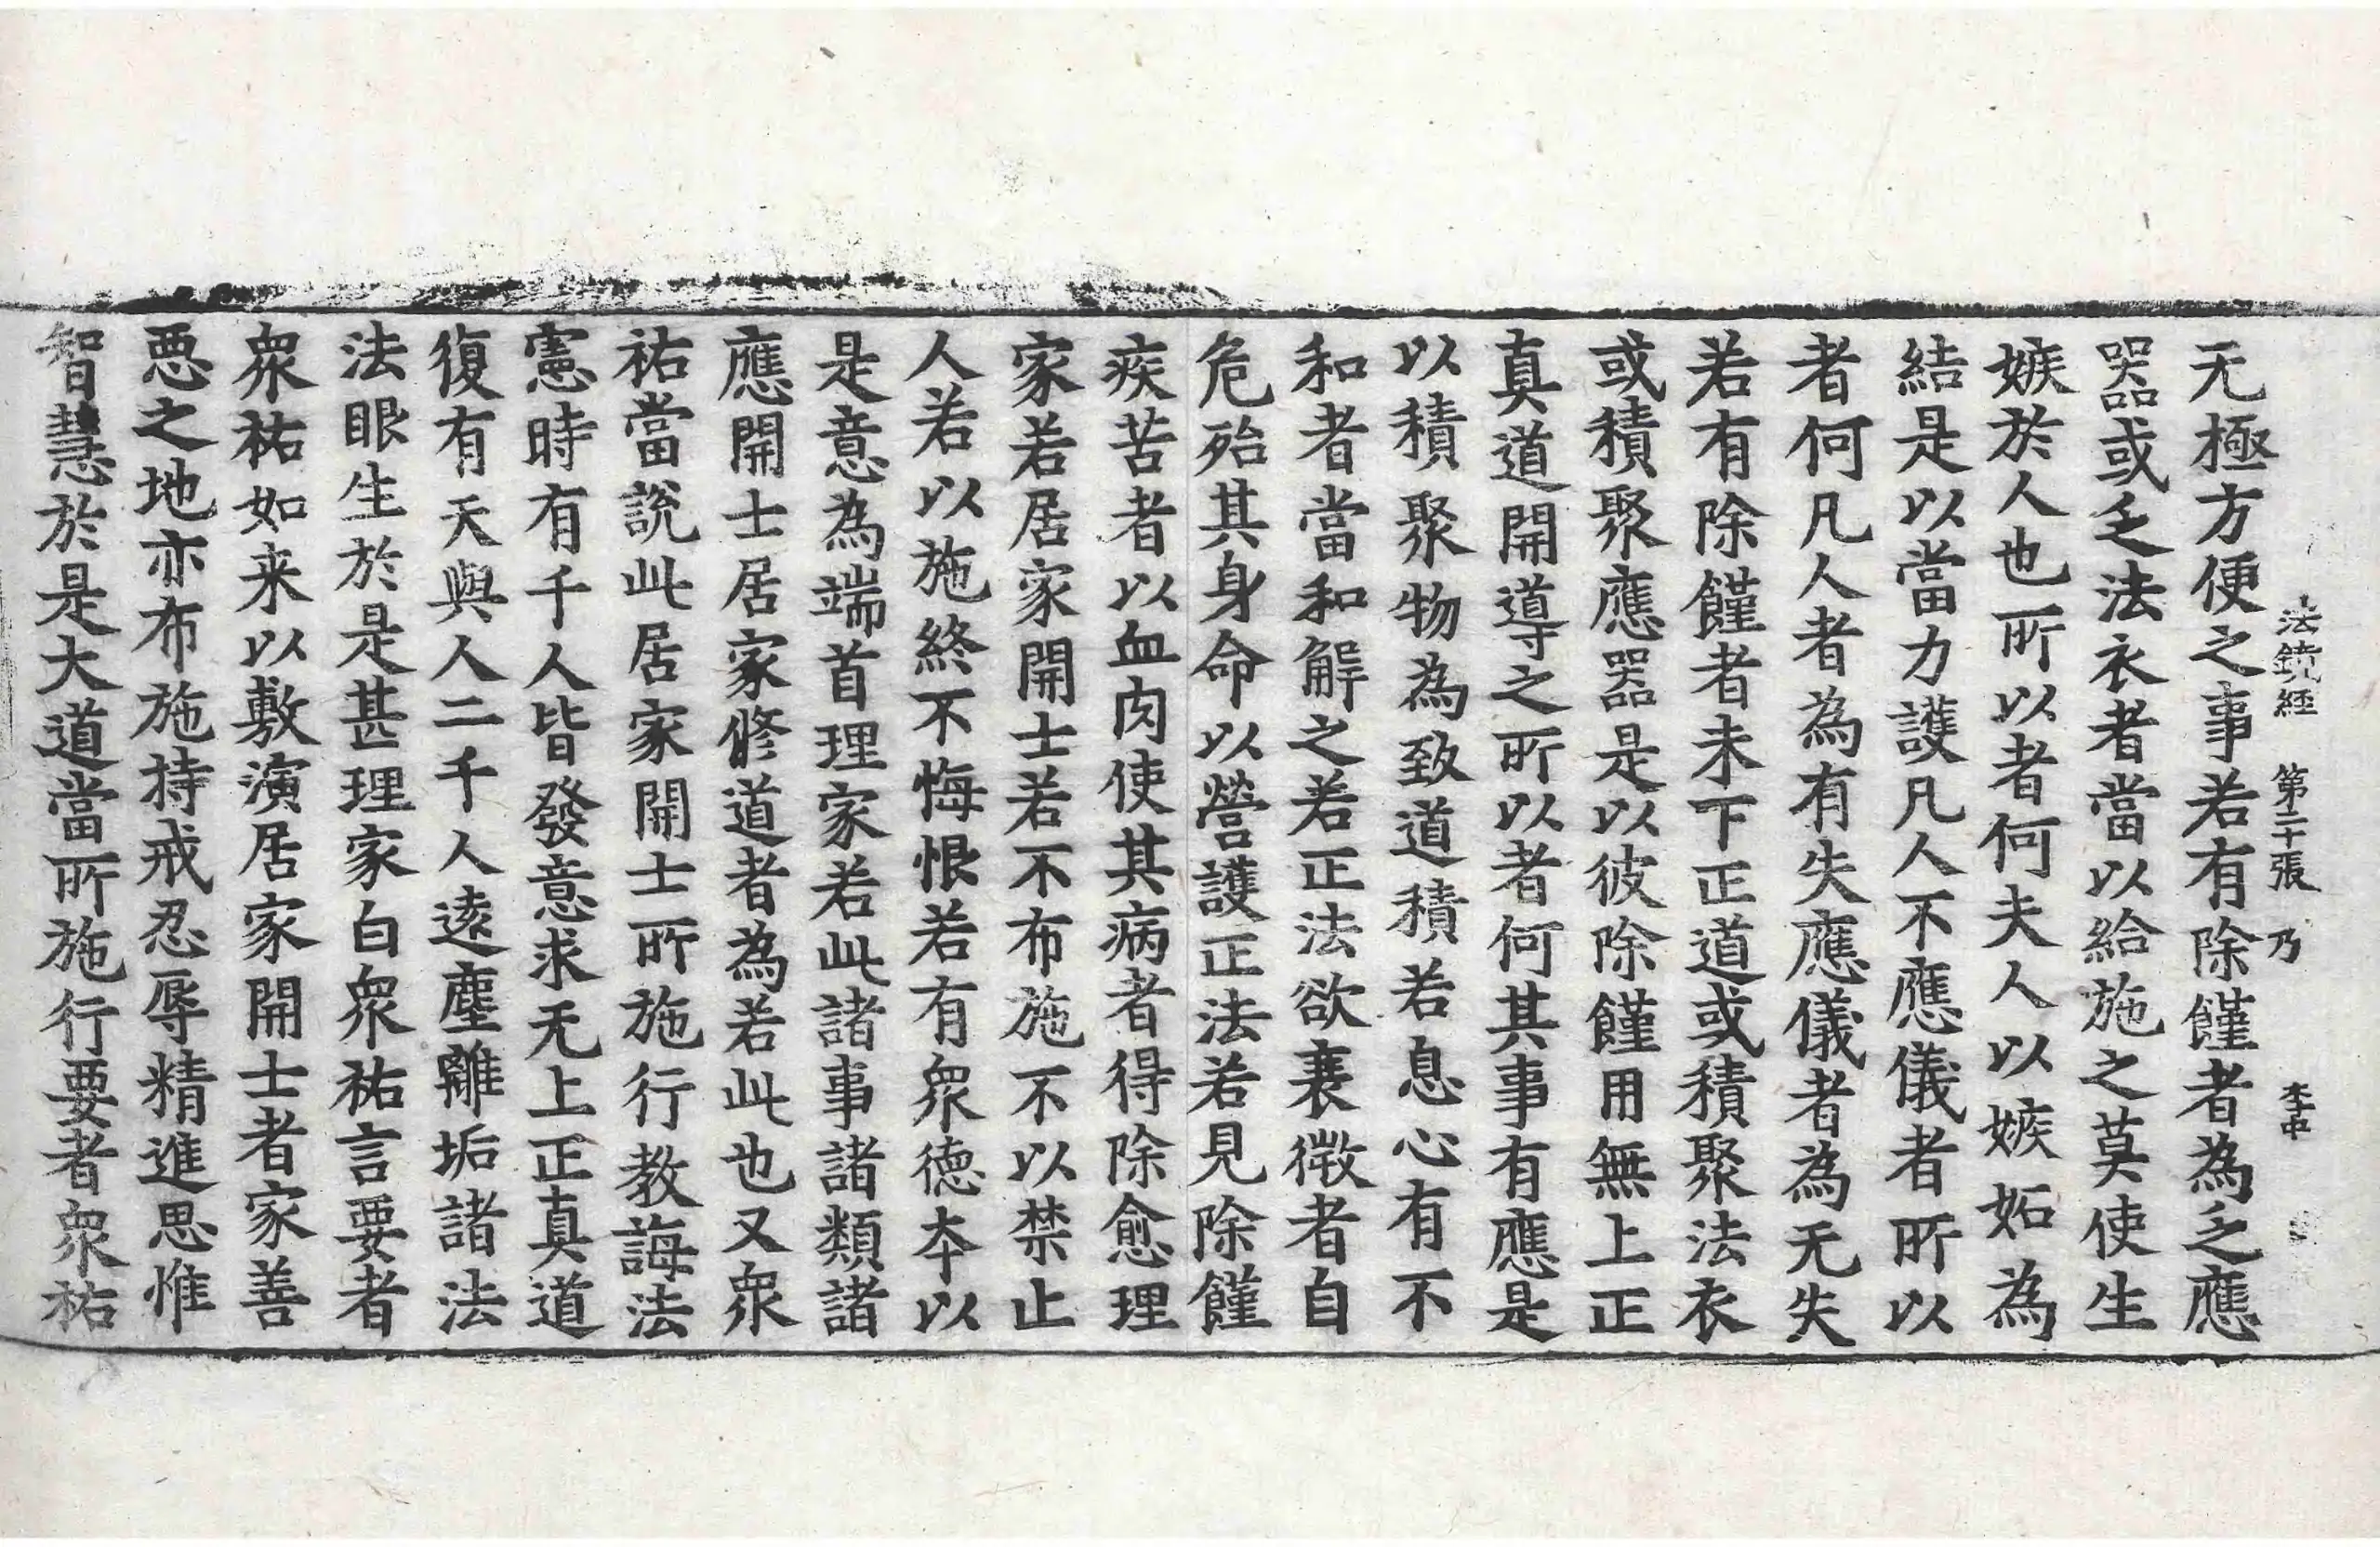 法鏡経 第二十張 乃 李中
无極方便之事若有除饉者為乏應
器或乏法衣者當以給施之莫使生
嫉於人也所以者何夫人以嫉妬為
結是以當力護凡人不應儀者所以
者何凡人者為有失應儀者為无失
若有除饉者未下正道或積聚法衣
或積聚應器是以彼除饉用無上正
真道開導之所以者何其事有應是
以積聚物為致道積若息心有不
和者當和解之若正法欲衰微者自
危殆其身命以營護正法若見除饉
疾苦者以血肉使其病者得除愈理
家若居家開士若不布施不以禁止
人若以施終不悔恨若有衆德夲以
是意為端首理家若此諸事諸類諸
應開士居家修道者為若此也又衆
祐當說此居家開士所施行教誨法
憲時有千人皆發意求无上正真道
復有天與人二千人遠塵離垢諸法
法眼生於是甚理家白衆祐言要者
衆祐如来以敷演居家開士者家善
悪之地亦布施持戒忍辱精進思惟
智慧於是大道當所施行要者衆祐